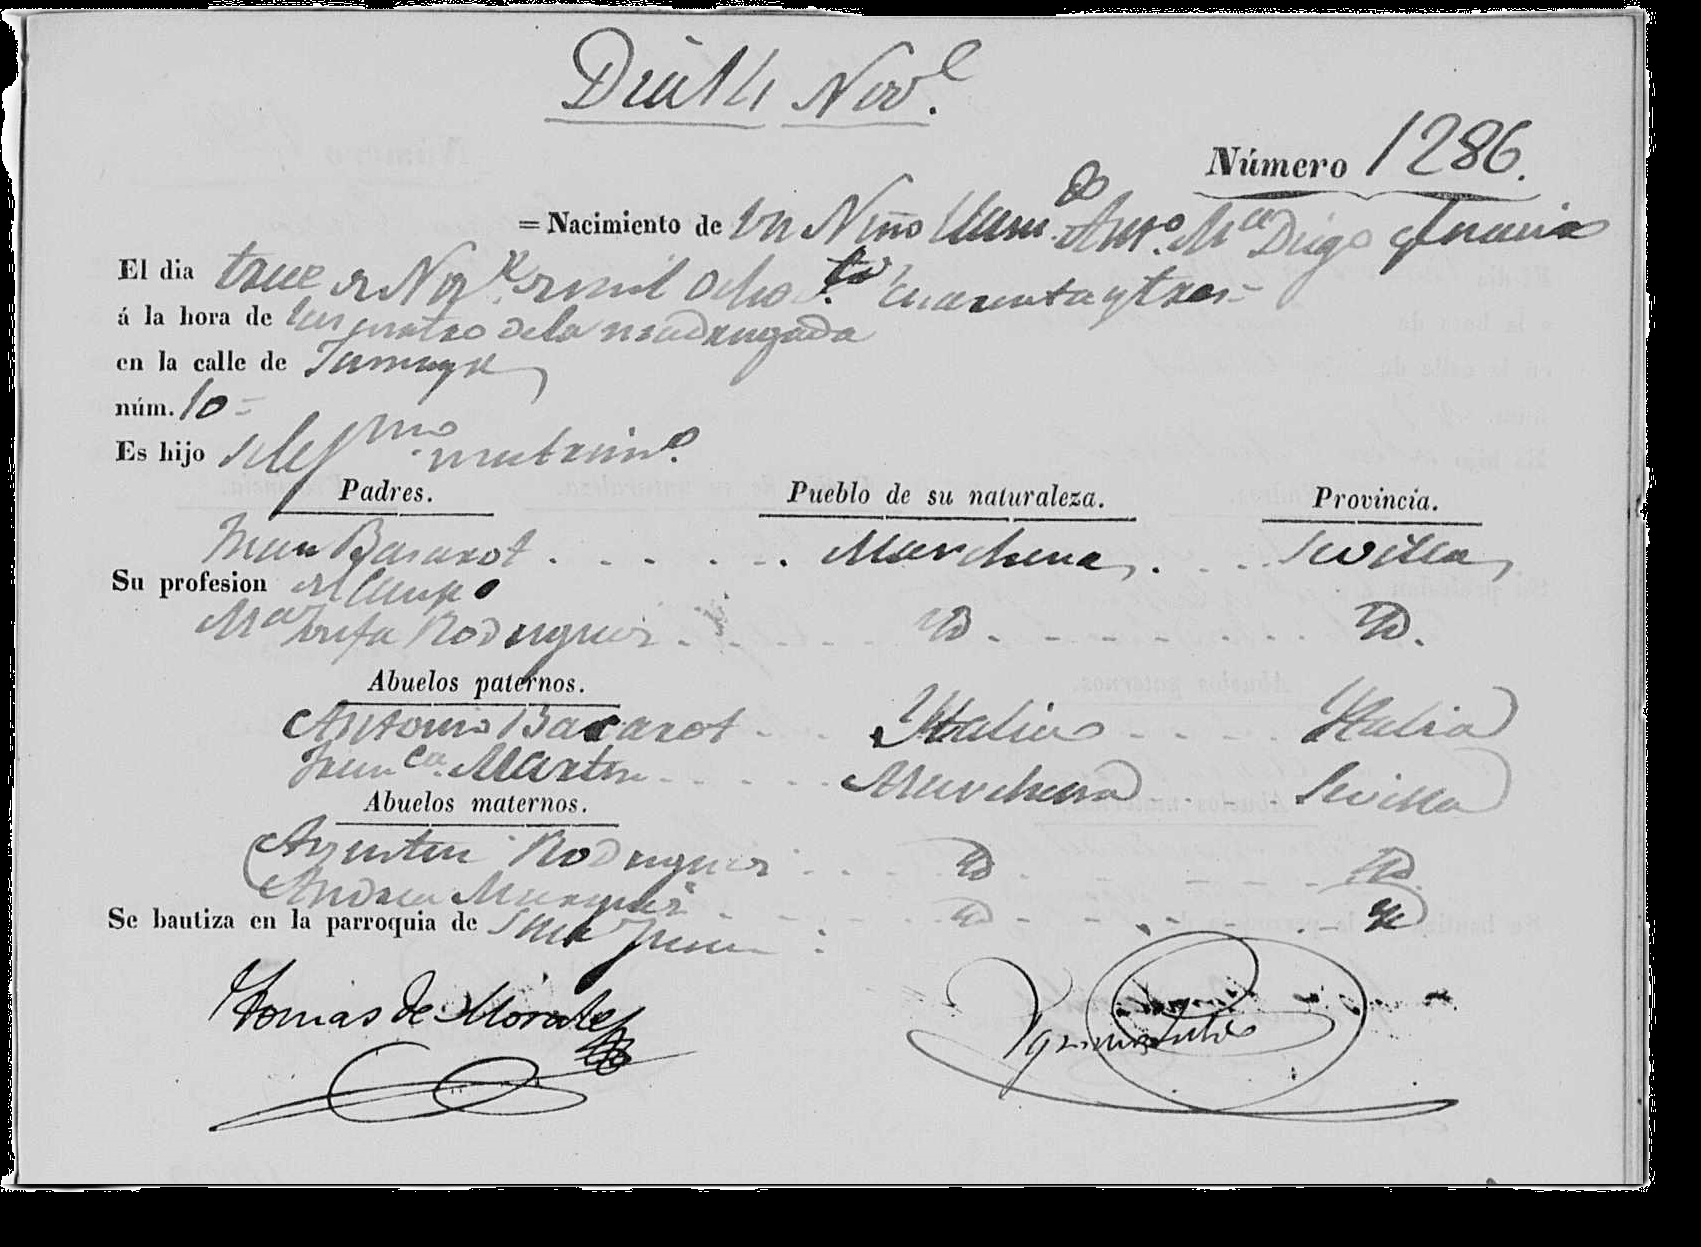 Dia 14 Nov.e
Número 1286.
= Nacimiento de un Niño llam.do Ant.o M.a Diego
El dia trece de Nov.e de mil ochos.tos cuarenta y tres =
á la hora de las cuatro de la madrugada
en la calle de
núm. 10 =
Es hijo de leg.mo matrim.o
Padres. Pueblo de su naturaleza. Provincia.
Juan Basarot . . . . . . Marchena, . . . . Sevilla,
Su profesion del Campo
M.a Josefa Rodriguez . . . . . . Yd . . . . . . Yd.
Abuelos paternos.
Antonio Basarot . . . Ytalia . . . . Ytalia
Fran.ca Martin . . . . . Marchena . . . . Sevilla
Abuelos maternos.
Agustin Rodriguez . . . . Yd . . . . . Yd
Andrea Marquez . . . . Yd . . . . . Yd
Se bautiza en la parroquia de San Juan :
Tomas de Morales